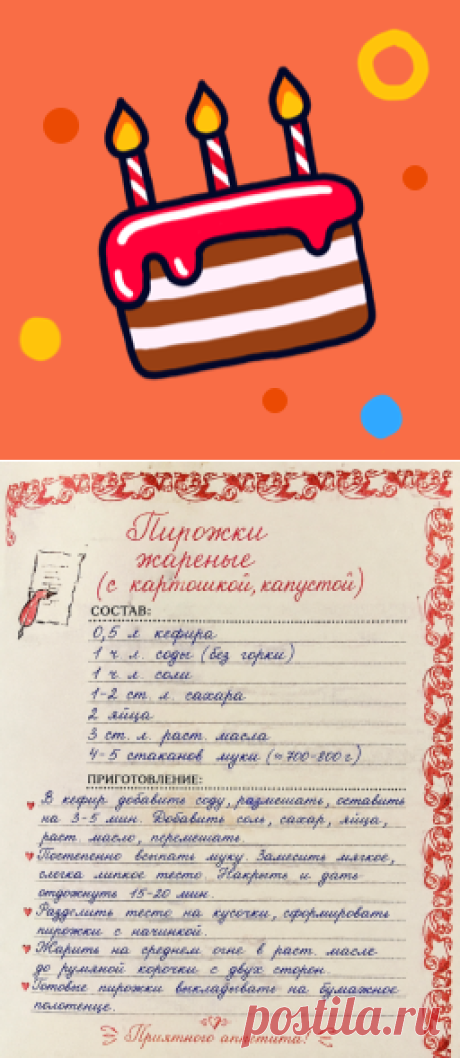 Пирожки
жареные
(с картошкой, капустой)
СОСТАВ:
0,5 л кефира
1 ч. л. соды (без горки)
1 ч. л. соли
1-2 ст. л. сахара
2 яйца
3 ст. л. раст. масла
4-5 стаканов муки (≈700-800 г)
ПРИГОТОВЛЕНИЕ:
В кефир добавить соду, размешать, оставить
на 3-5 мин. Добавить соль, сахар, яйца,
раст. масло, перемешать.
Постепенно всыпать муку. Замесить мягкое,
слегка липкое тесто. Накрыть и дать
отдохнуть 15-20 мин.
Разделить тесто на кусочки, сформировать
пирожки с начинкой.
Жарить на среднем огне в раст. масле
до румяной корочки с двух сторон.
Готовые пирожки выкладывать на бумажное
полотенце.
Приятного аппетита!
postila.ru